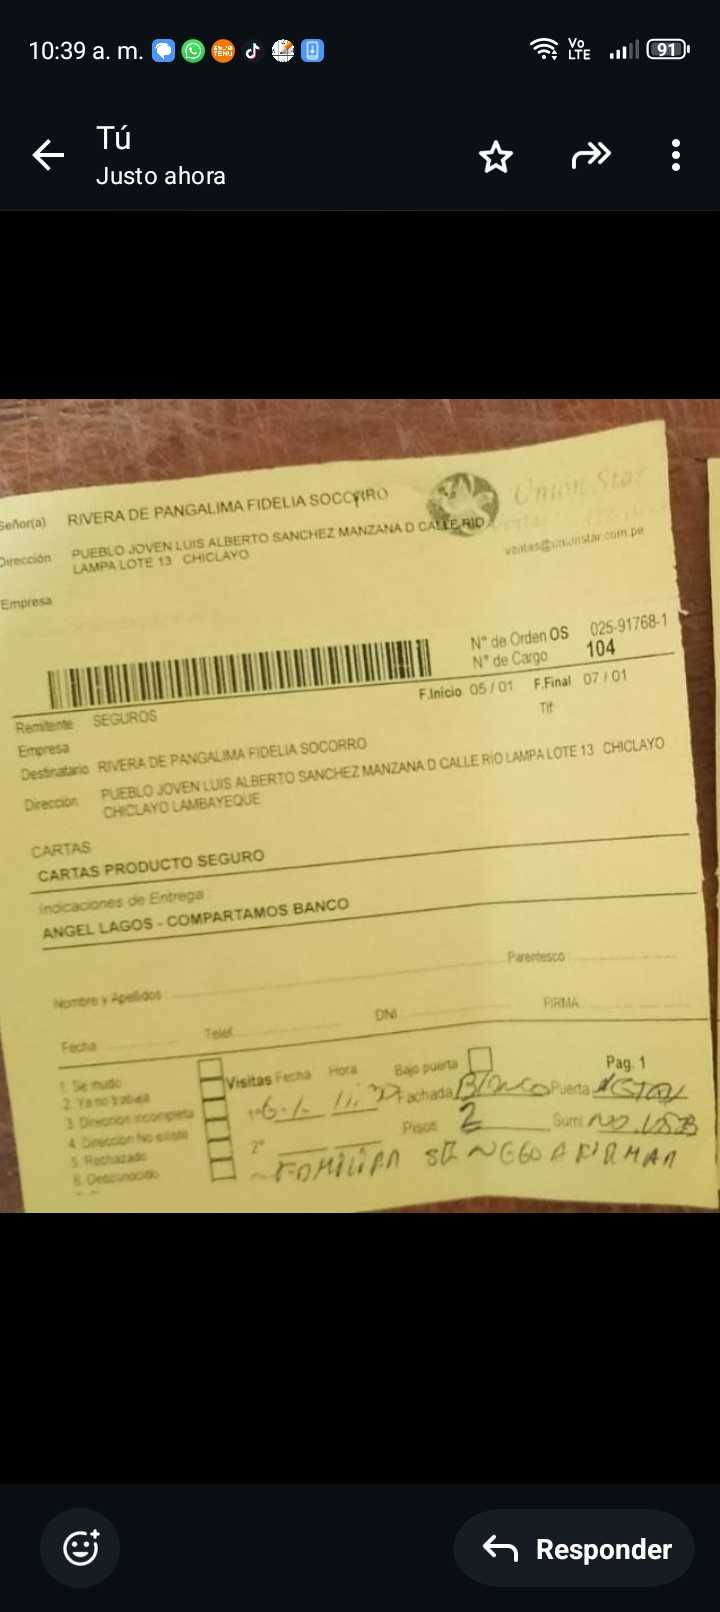 10:39 a. m.
Vo
LTE
91
Tú
Justo ahora
Señor(a) RIVERA DE PANGALIMA FIDELIA SOCORRO
Union Star
Dirección PUEBLO JOVEN LUIS ALBERTO SANCHEZ MANZANA D CALLE RIO
LAMPA LOTE 13 CHICLAYO
ventas@unionstar.com.pe
Empresa
N° de Orden OS 025-91768-1
N° de Cargo 104
F.Inicio 05 / 01 F.Final 07 / 01
Remitente SEGUROS
Tlf
Empresa
Destinatario RIVERA DE PANGALIMA FIDELIA SOCORRO
Dirección PUEBLO JOVEN LUIS ALBERTO SANCHEZ MANZANA D CALLE RIO LAMPA LOTE 13 CHICLAYO
CHICLAYO LAMBAYEQUE
CARTAS
CARTAS PRODUCTO SEGURO
Indicaciones de Entrega
ANGEL LAGOS - COMPARTAMOS BANCO
Nombre y Apellidos Parentesco
Fecha Telef. DNI FIRMA
1. Se mudo
2. Ya no trabaja
3. Dirección incompleta
4. Dirección No existe
5. Rechazado
6. Desconocido
Visitas Fecha Hora Bajo puerta Pag. 1
1° 6-1- Fachada BlANCO Puerta
Pisos 2 Sum
2°
FAMILIAR SE NEGO A FIRMAR
Responder